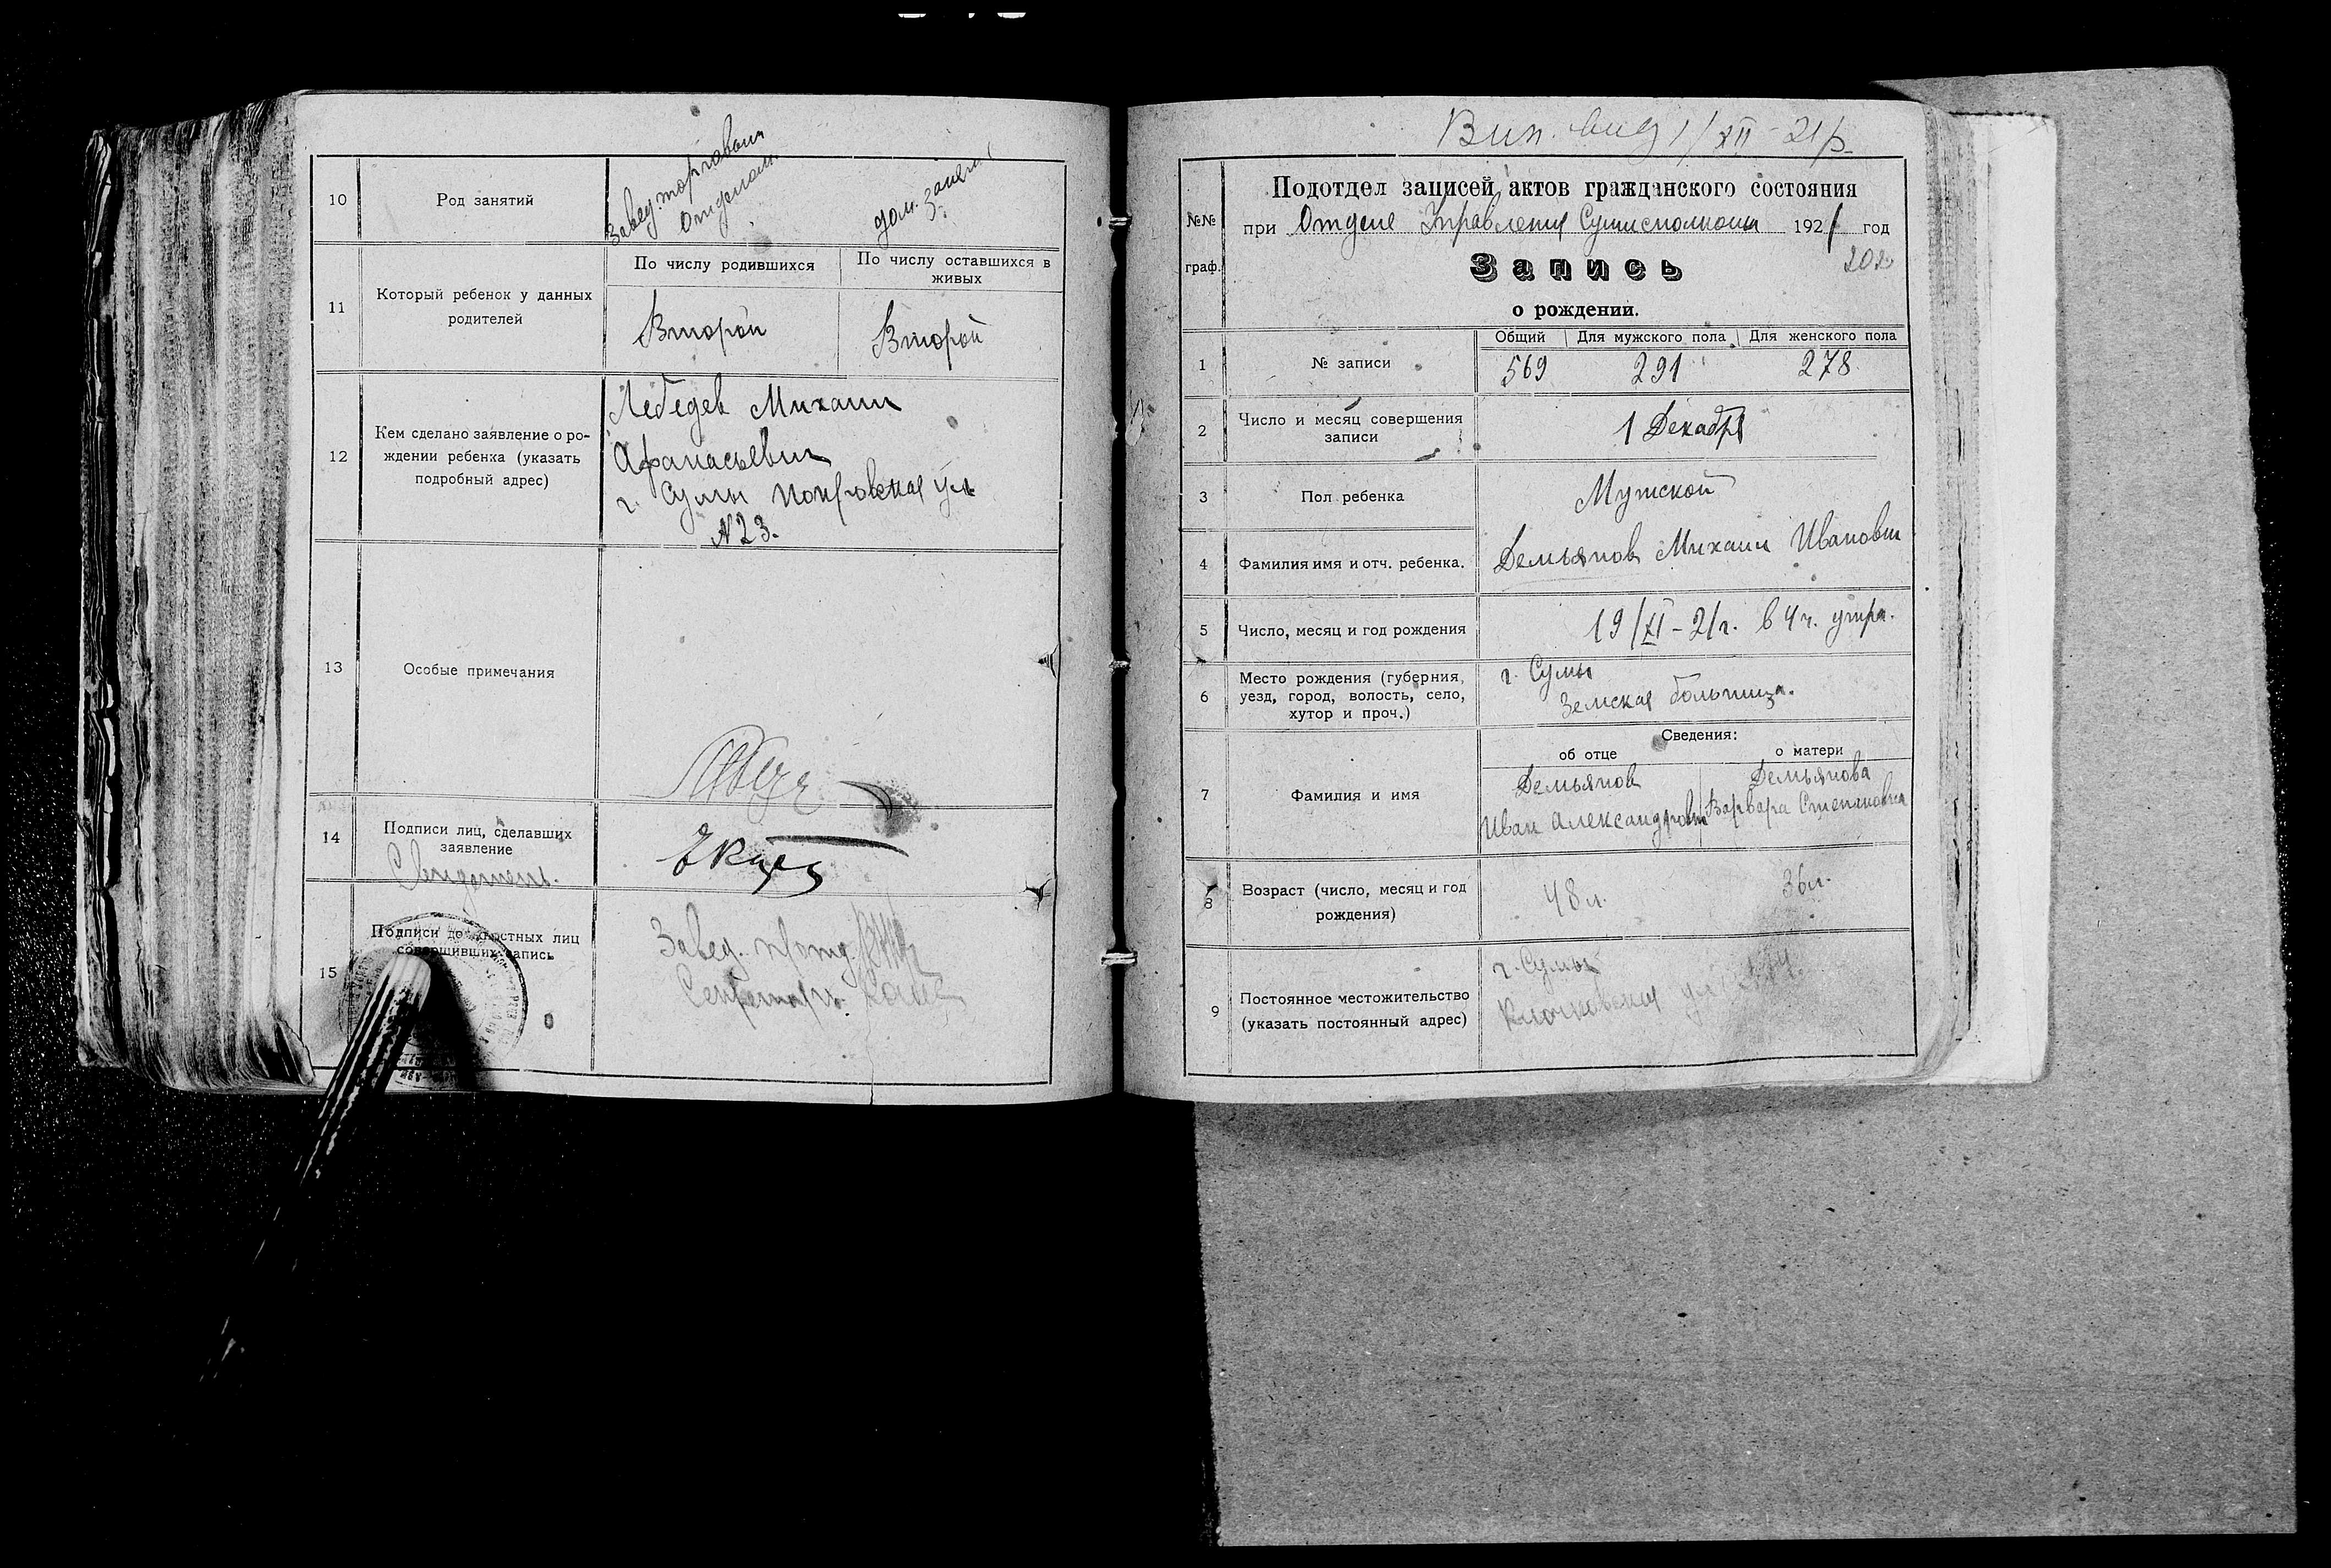 10 Род занятий
Завед. торговым
Отделом.
дом. Занят.
11 Который ребенок у данных
родителей
По числу родившихся
По числу оставшихся в
живых
Второй
Второй
12 Кем сделано заявление о ро-
ждении ребенка (указать
подробный адрес)
Лебедев Михаил
Афанасьевич
г. Сумы Покровская ул
№23.
13 Особые примечания
14 Подписи лиц, сделавших
заявление
15 Подписи
совершивших запись
Завед.
Секретарь
Вип. вид 1/XII-21р
№№
граф.
Подотдел записей актов гражданского состояния
при Отделе Управления Сумисполкома 1921 год
202
Запись
о рождении.
1 № записи
Общий Для мужского пола Для женского пола
569 291 278
2 Число и месяц совершения
записи
1 Декабря
3 Пол ребенка
Мужской
4 Фамилия имя и отч. ребенка.
Демьянов Михаил Иванович
5 Число, месяц и год рождения
19/XI-21г. в 4ч. утра.
6 Место рождения (губерния,
уезд, город, волость, село,
хутор и проч.)
г. Сумы
Земская больница.
Сведения:
об отце о матери
7 Фамилия и имя
Демьянов
Иван Александрович
Демьянова
Варвара Степановна
8 Возраст (число, месяц и год
рождения)
48 л.
36 л.
9 Постоянное местожительство
(указать постоянный адрес)
г. Сумы
ул